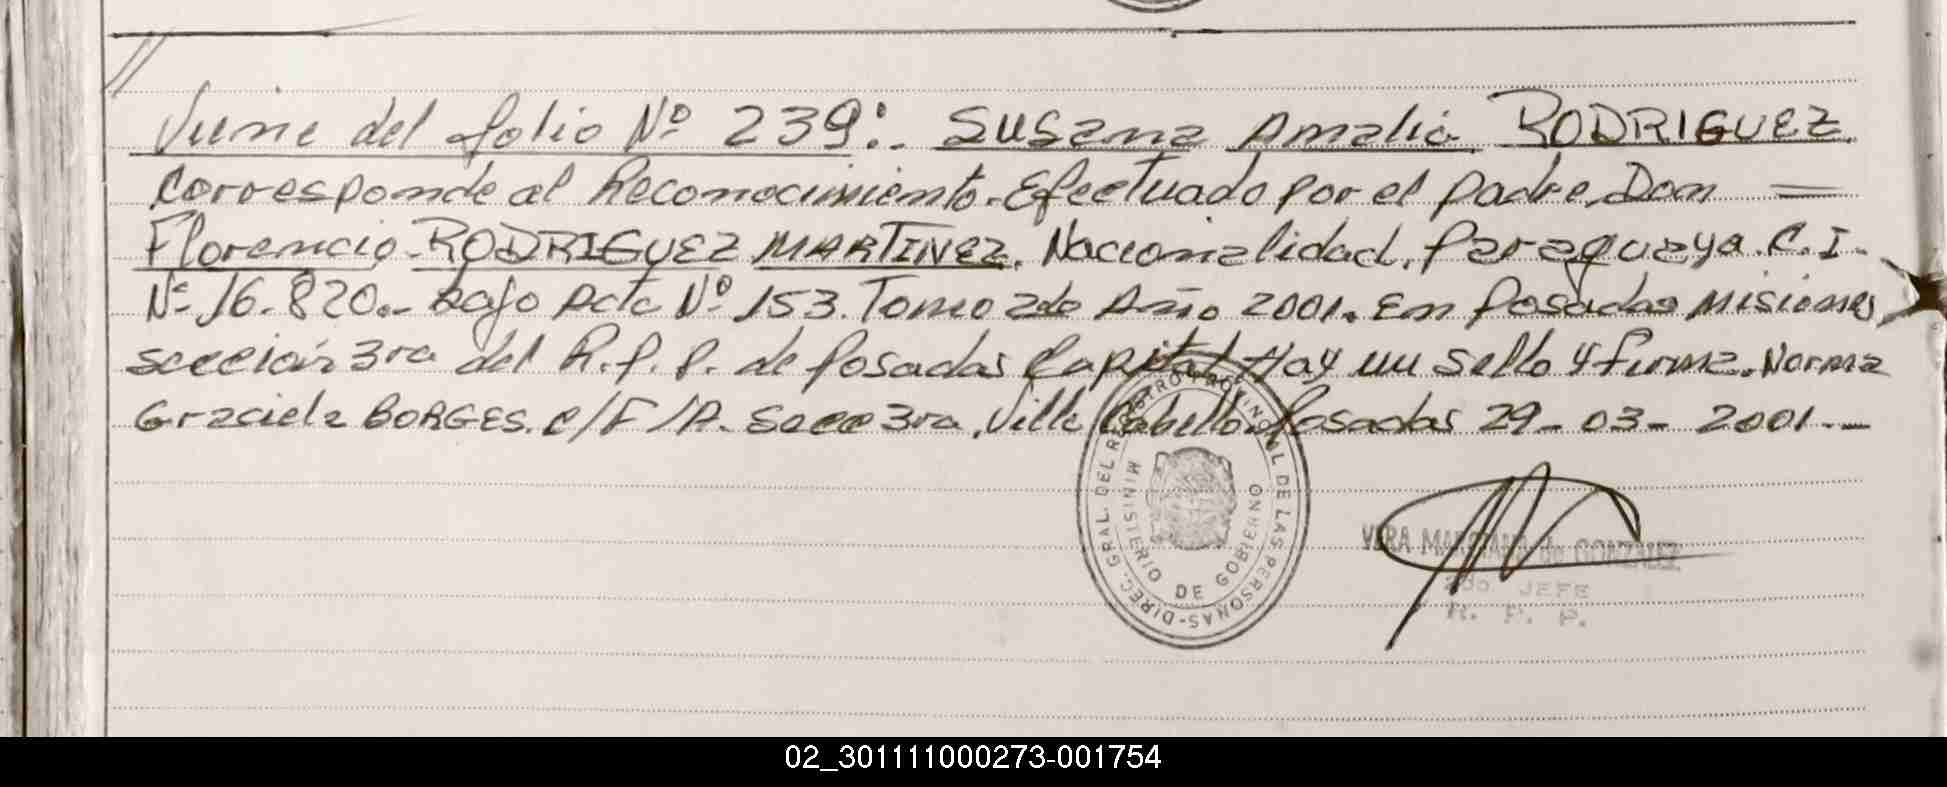 //
Viene del folio Nº 239:. Susana Amalia RODRIGUEZ
Corresponde al Reconocimiento. Efectuado por el padre, Don =
Florencio. RODRIGUEZ MARTINEZ. Nacionalidad, paraguaya. C.I.
Nº 16.820.- bajo Acta Nº 153. Tomo 2do Año 2001. En Posadas Misiones
sección 3ra del R.P.P. de Posadas Capital Hay un sello y firma. Norma
Graciela BORGES. e/F/A. Secc 3ra, Villa Cabello. Posadas 29-03-2001.-
DIREC. GRAL. DEL REGISTRO PROVINCIAL DE LAS PERSONAS-
MINISTERIO DE GOBIERNO
VERA MARCIANA de GONZALEZ
2do JEFE
R. P. P.
02_301111000273-001754